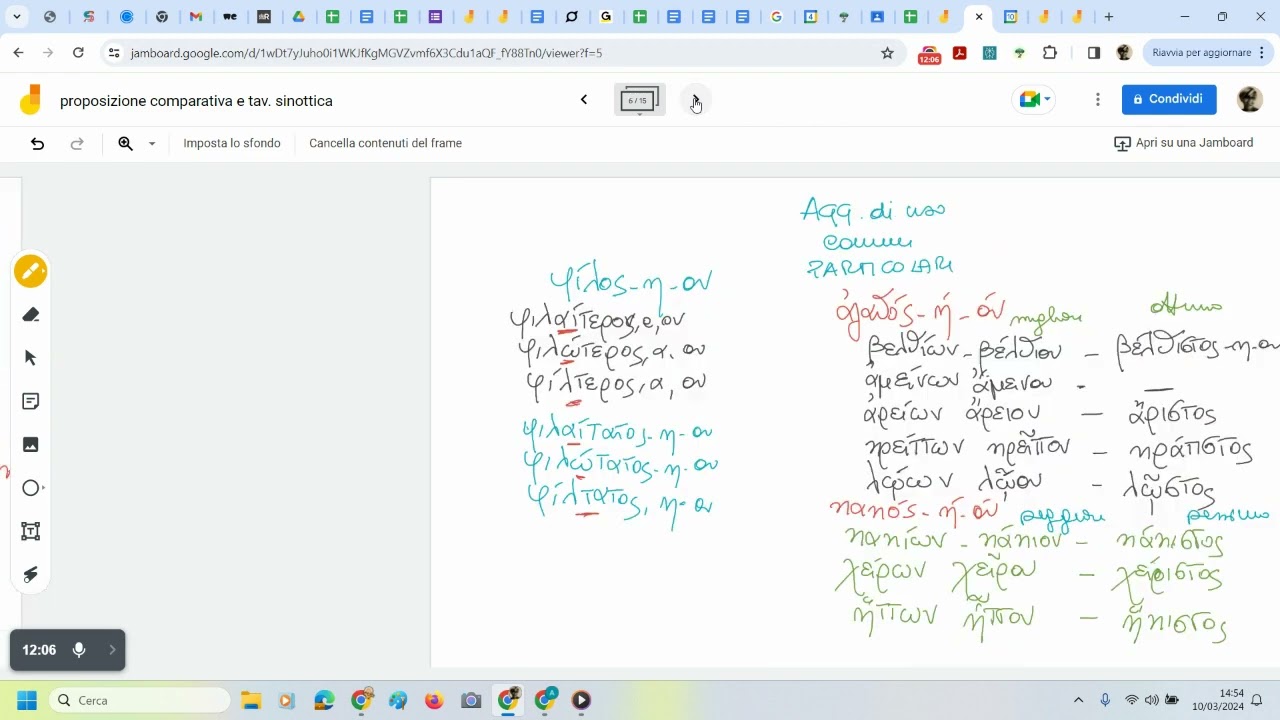 jamboard.google.com/d/1wDt7yJuho0i1WKJfKgMGVZvmf6X3Cdu1aQF_fY88Tn0/viewer?f=5
12:06
Riavvia per aggiornare
proposizione comparativa e tav. sinottica
6 / 15
Condividi
Imposta lo sfondo
Cancella contenuti del frame
Apri su una Jamboard
Agg. di uso
comune
PARTICOLARE
φίλος-η-ον
φιλαίτερος,α,ον
φιλώτερος,α,ον
φίλτερος,α,ον
φιλαίτατος-η-ον
φιλώτατος-η-ον
φίλτατος, η-ον
ἀγαθός-ή-όν migliore ottimo
βελτίων-βέλτιον - βέλτιστος-η-ον
ἀμείνων ἄμεινον - —
ἀρείων ἄρειον — ἄριστος
κρείττων κρεῖττον - κράτιστος
λῴων λῷον - λῷστος
κακός-ή-όν peggiore pessimo
κακίων - κάκιον - κάκιστος
χείρων χεῖρον - χείριστος
ἥττων ἧττον - ἥκιστος
12:06
Cerca
14:54
10/03/2024